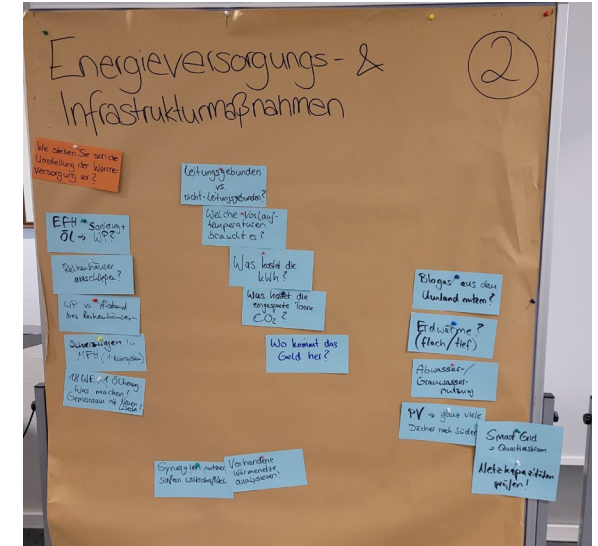 Energieversorgungs- &
Infrastrukturmaßnahmen
2
Wie stellen Sie sich die
Umstellung der Wärme-
versorgung vor?
EFH Sanierung +
Öl → WP?
Reihenhäuser
anschließen?
WP vs. Abstand
bei Reihenhäusern
in
MFH (1-Rohrsystem)
18 WE, 1 Ölheizung
Was machen?
Gemeinsam mit neuen
Leitungsgebunden
vs.
nicht-leitungsgebunden?
Welche Vorlauf-
temperaturen
braucht es?
Was kostet die
kWh?
Was kostet die
eingesparte Tonne
CO₂?
Wo kommt das
Geld her?
Synergien nutzen
sofern wirtschaftlich
Vorhandene
Wärmenetze
analysieren?
Biogas aus dem
Umland nutzen?
Erdwärme?
(flach/tief)
Abwasser-/
Grauwasser-
nutzung
PV → ganz viele
Dächer nach Süden
Smart Grid
> Quartiersstrom
Netzkapazitäten
prüfen!